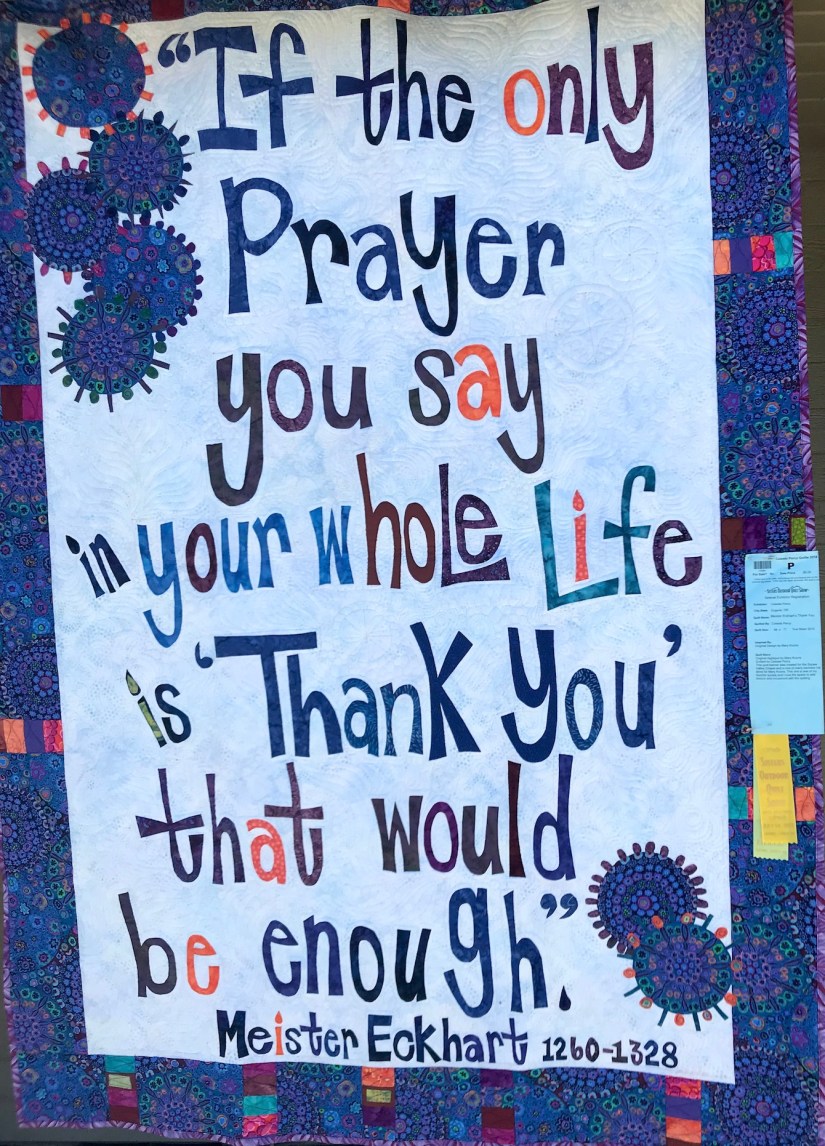 “If the only
Prayer
you say
in your whole Life
is ‘Thank You’
that would
be enough.”
Meister Eckhart 1260-1328
P